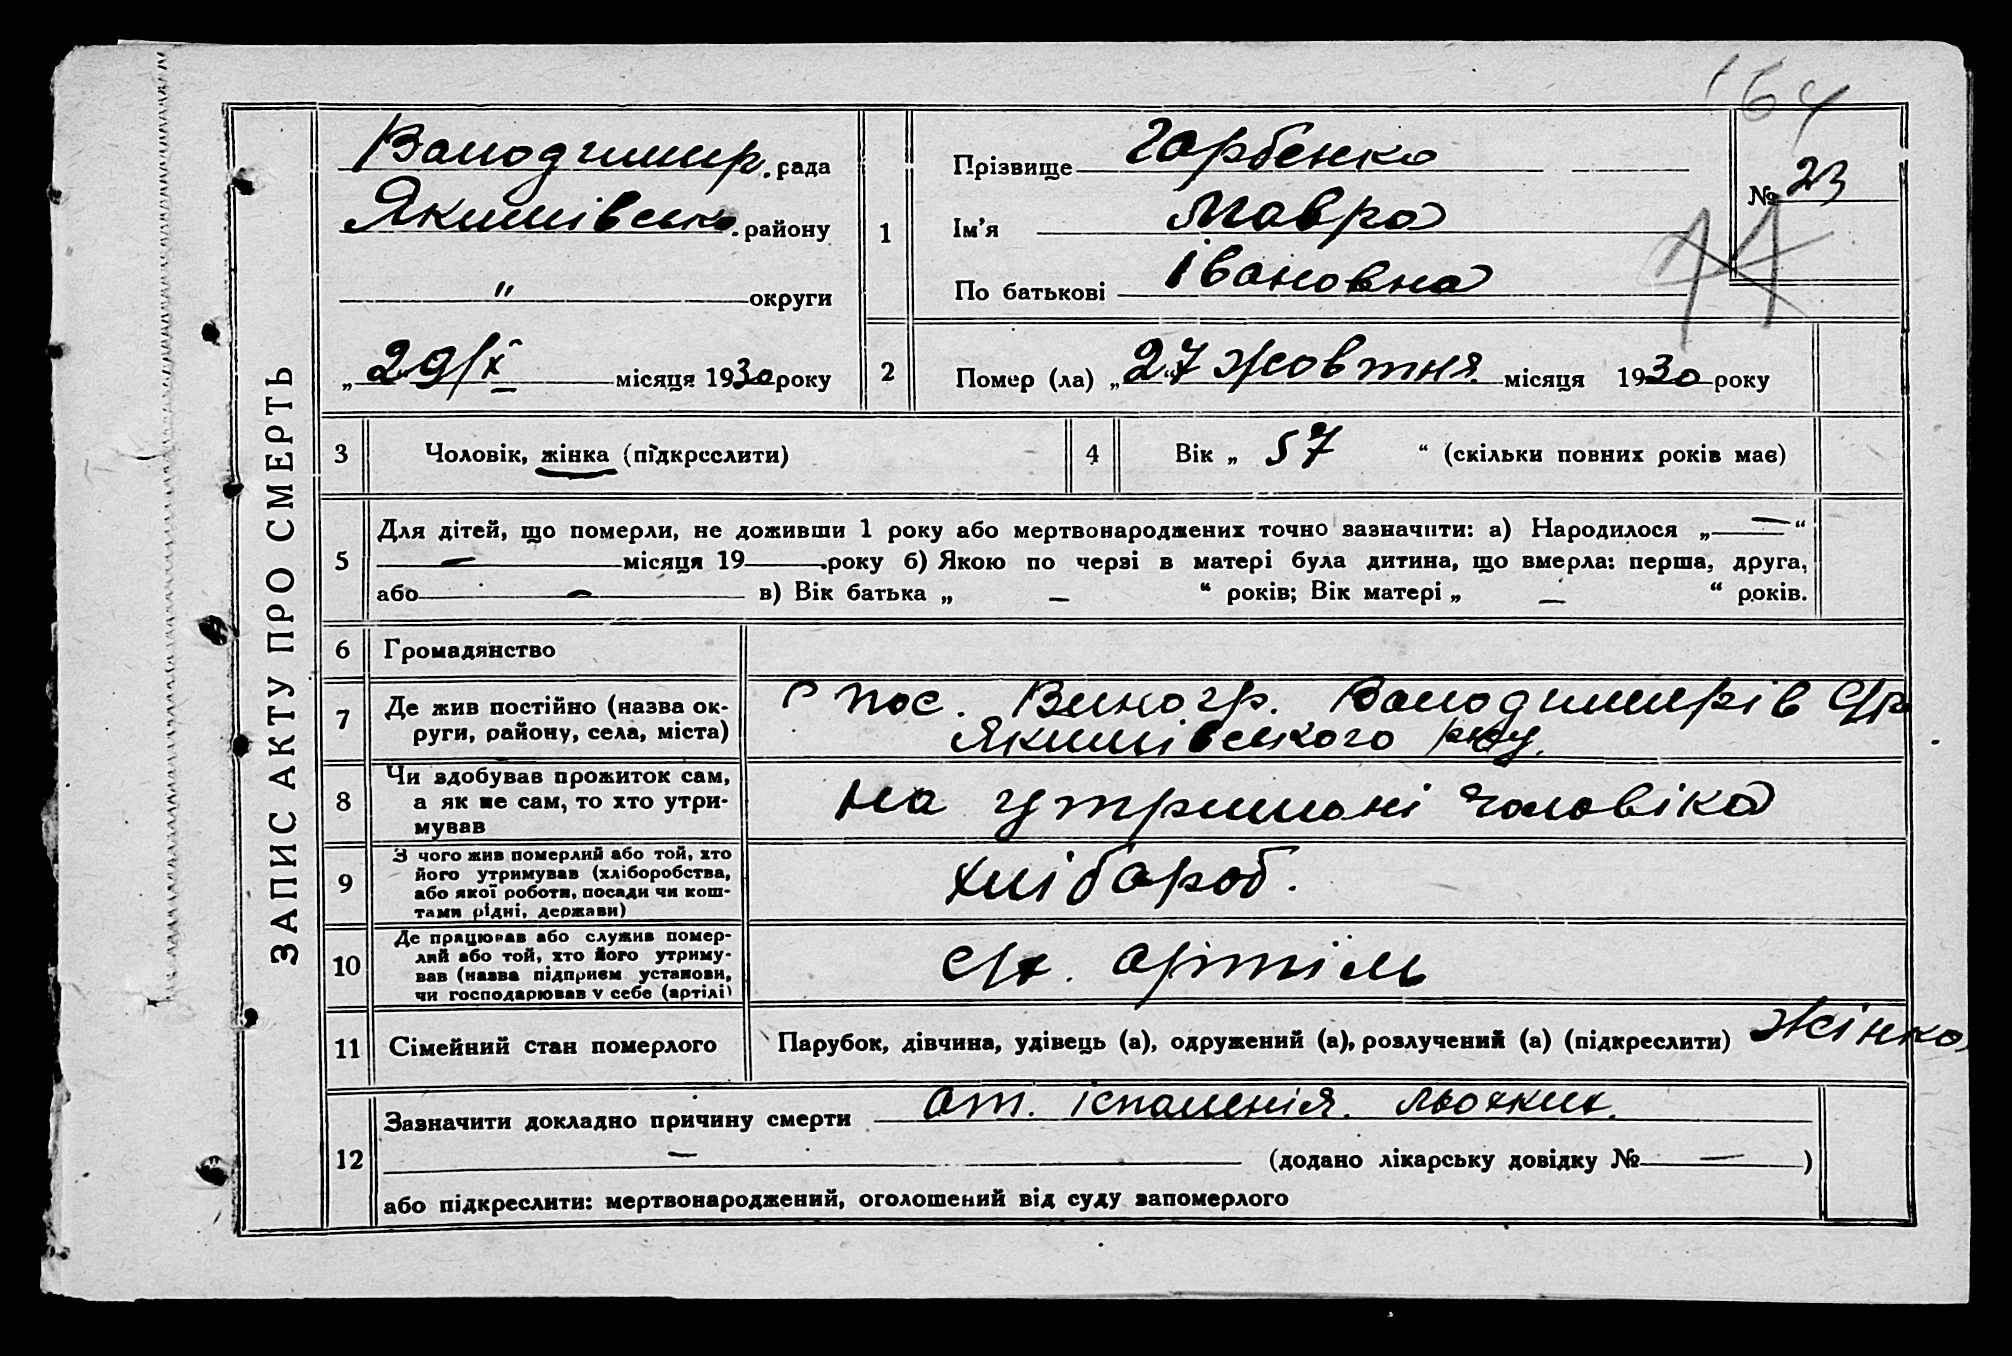 164
ЗАПИС АКТУ ПРО СМЕРТЬ
Володимир. рада
Якимівсько. району
" округи
„ 29/X місяця 1930 року
1
Прізвище Гарбенко
Ім'я Мавра
По батькові Івановна
№ 23
2 Помер (ла) „ 27 жовтня місяця 1930 року
3 Чоловік, жінка (підкреслити)
4 Вік „ 57 “ (скільки повних років має)
5 Для дітей, що померли, не доживши 1 року або мертвонароджених точно зазначити: а) Народилося „ — “
— місяця 19 року б) Якою по черзі в матері була дитина, що вмерла: перша, друга,
або — в) Вік батька „ — “ років; Вік матері „ — “ років.
6 Громадянство
7 Де жив постійно (назва ок-
руги, району, села, міста)
пос. Виногр. Володимирів с/р
Якимівського р-ну.
8 Чи здобував прожиток сам,
а як не сам, то хто утри-
мував
на утримані чоловіка
9 З чого жив померлий або той, хто
його утримував (хліборобства,
або якої роботи, посади чи кош-
тами рідні, держави)
хлібароб.
10 Де працював або служив помер-
лий або той, хто його утриму-
вав (назва підприєм установи,
чи господарював у себе (артілі)
с/х. артіль
11 Сімейний стан померлого
Парубок, дівчина, удівець (а), одружений (а), розлучений (а) (підкреслити) Жінка
12 Зазначити докладно причину смерти от. іспаленія. льохких.
— (додано лікарську довідку № — )
або підкреслити: мертвонароджений, оголошений від суду запомерлого